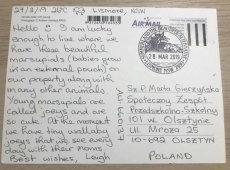 27/3/19 26°C Lismore, NSW
Hello ☺ I am lucky
enough to live where we
have these beautiful
marsupials (babies grow
in an external pouch) on
our property along with
many other animals.
Young marsupials are
called joeys and are
so cute. At the moment
we have tiny wallaby
joeys that we see every
day with their moms.
Best wishes, Leigh
AIR MAIL
28 MAR 2019
Sz.P. Marta Gierzyńska
Społeczny Zespół
Przedszkolno-Szkolny
101 w Olsztynie
Ul. Mroza 25
10-692 OLSZTYN
POLAND